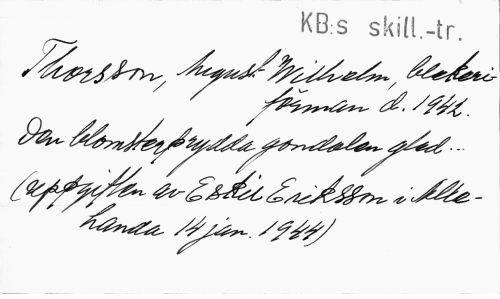 KB:s skill.-tr.
Thorsson, August Wilhelm, blekeri-
förman d. 1942.
Den blomsterprydda gondolen gled...
(uppgiften av Eskil Eriksson i Alle-
handa 14 jan. 1944)